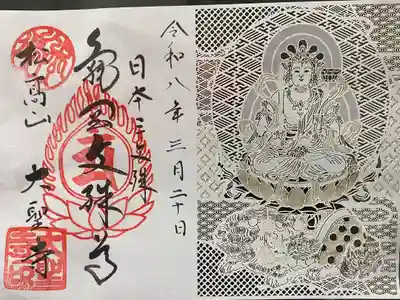 令和八年三月二十日
日本三文殊
亀岡文殊尊
松高山 大聖寺